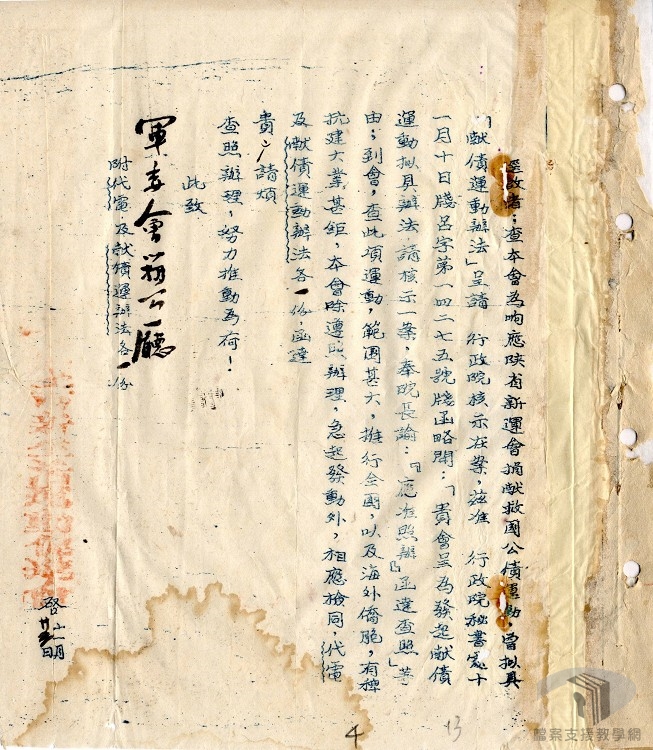 逕啟者：查本會為响應陝省新運會捐献救國公債運動，曾拟具
「献債運動辦法」呈請　行政院核示在案，茲准　行政院秘書處十
一月十日牋呂字第一四二七五號牋函略開：「貴會呈為發起献債
運動拟具辦法請核示一案，奉院長諭：『應准照辦』函達查照」等
由；到會，查此項運動，範圍甚大，推行全國，以及海外僑胞，有裨
抗建大業甚鉅，本會除遵照辦理，急起發動外，相應檢同，代電
及献債運動辦法各一份，函達
貴廳請煩
查照辦理，努力推動為荷！
此致
軍委會辦公廳
附代電及献債運辦法各一份
啓 十一月廿五日
4
13
檔案支援教學網